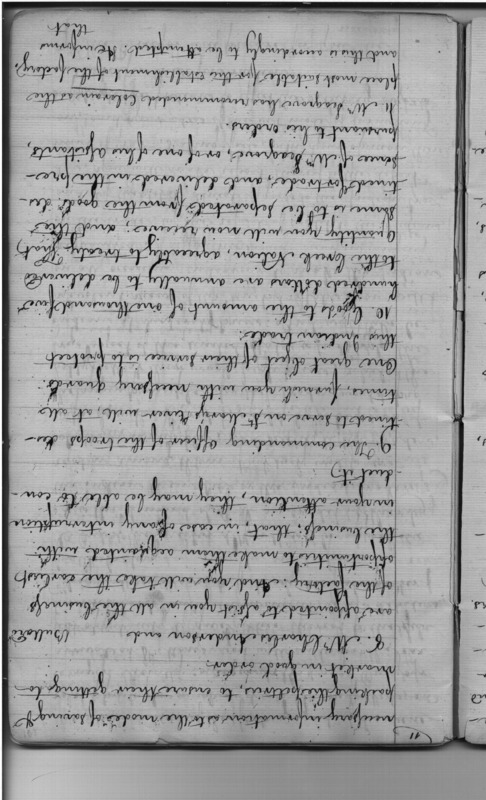 11
necessary information as to the mode of curing &
packing the peltries, to ensure their getting to
market in good order.
8. Mr Charles Anderson and Bullock
are appointed to assist you in all the business
of the factory; and you will take the earliest
opportunities to make them acquainted with
the business, that, in case of any interruption
in your attention, they may be able to con-
duct it.
9. The commanding Officer of the troops des-
tined to serve on St Marys river will, at all
times, furnish you with necessary guards.
One great object of their service is to protect
this Indian trade.
10. Goods to the amount of one thousand five
hundred dollars are annually to be delivered
to the Creek Nation, agreeably to treaty. That
Quantity you will now receive; and the
same is to be separated from the goods des-
tined for trade, and delivered in the pre-
sence of Mr Seagrove, or of one of his assistants,
pursuant to his orders.
11. Mr Seagrove has recommended Colerain as the
place most suitable for the establishment of the factory,
and this is accordingly to be attempted. He informs
that